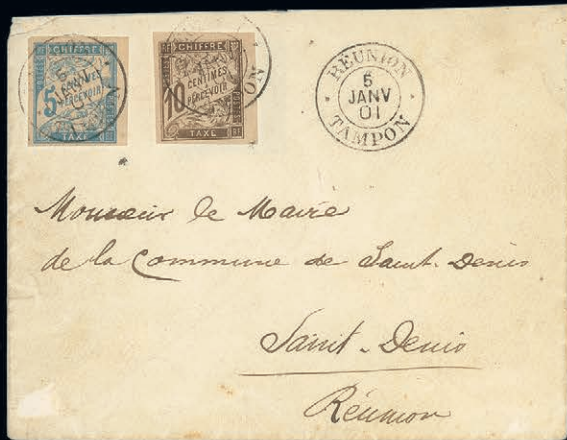 CHIFFRE
5
CENTIMES
PERCEVOIR
TAXE
5
JANV
01
CHIFFRE
10
CENTIMES
PERCEVOIR
TAXE
RÉUNION
5
JANV
01
TAMPON
Monsieur le Maire
de la Commune de Saint-Denis
Saint-Denis
Réunion